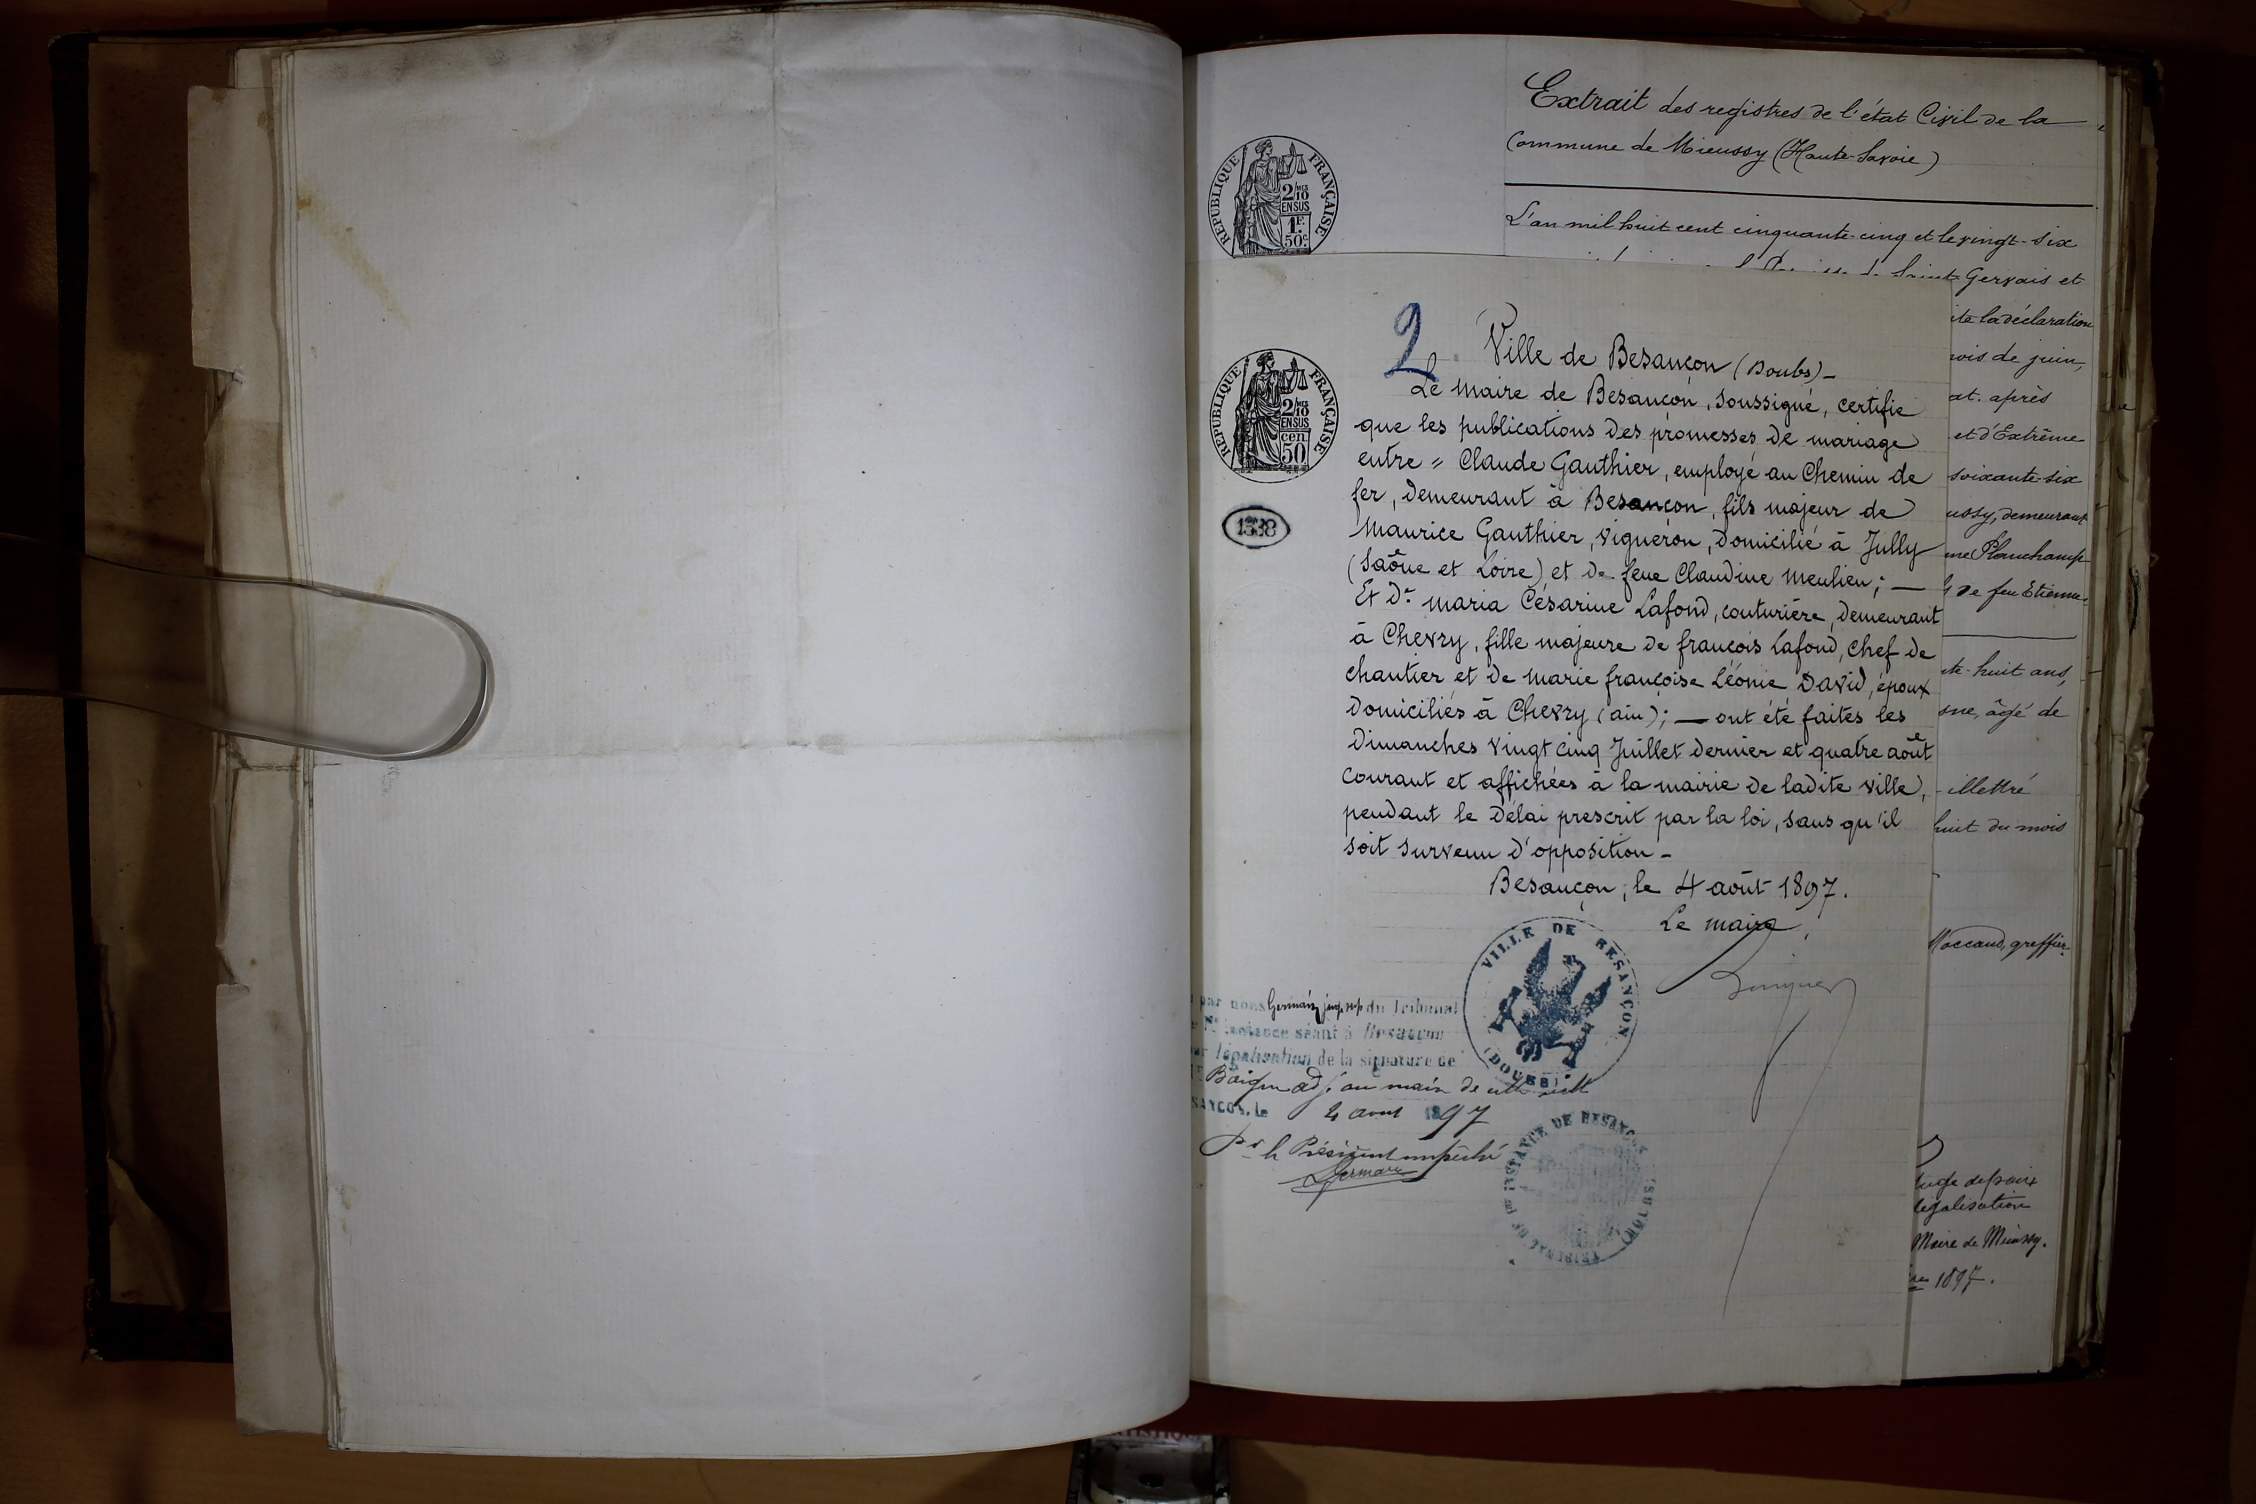 Extrait des registres de l'état Civil de la
Commune de Mieussy (Haute-Savoie)
RÉPUBLIQUE FRANÇAISE
2/10 EN SUS
1F. 50c.
L'an mil huit cent cinquante-cinq et le vingt-six
Saint Gervais et
ite la déclaration
mois de juin,
at. après
et d'Extrême
soixante-six
ussy, demeurant
me Plauchamp
de feu Etienne
te-huit ans,
sne, âgé de
illettré
huit du mois
Moccand, greffier
juge de paix
légalisation
Maire de Mieussy.
1897.
2
RÉPUBLIQUE FRANÇAISE
2/10 EN SUS
cen. 50
1338
Ville de Besançon (Doubs)_
Le maire de Besançon, soussigné, certifie
que les publications des promesses de mariage
entre = Claude Gauthier, employé au Chemin de
fer, demeurant à Besançon, fils majeur de
Maurice Gauthier, vigneron, domicilié à Jully
(Saône et Loire) et de feue Claudine Meulien; —
Et De. Maria Césarine Lafond, couturière, demeurant
à Chevry, fille majeure de françois Lafond, chef de
chantier et de Marie françoise Léonie David, époux
domiciliés à Chevry (ain); — ont été faites les
Dimanches vingt cinq Juillet dernier et quatre août
courant et affichées à la mairie de ladite ville,
pendant le délai prescrit par la loi, sans qu'il
soit survenu d'opposition_
Besançon, le 4 août 1897.
Le maire,
VILLE DE BESANÇON
(DOUBS)
par nous Germain juge sup du Tribunal
1re instance séant à Besançon
légalisation de la signature de
adj. au maire de cette ville
SANÇON, le 4 aout 1897
Pr le Président empêché
Germain
TRIBUNAL DE 1re INSTANCE DE BESANÇON
(DOUBS)